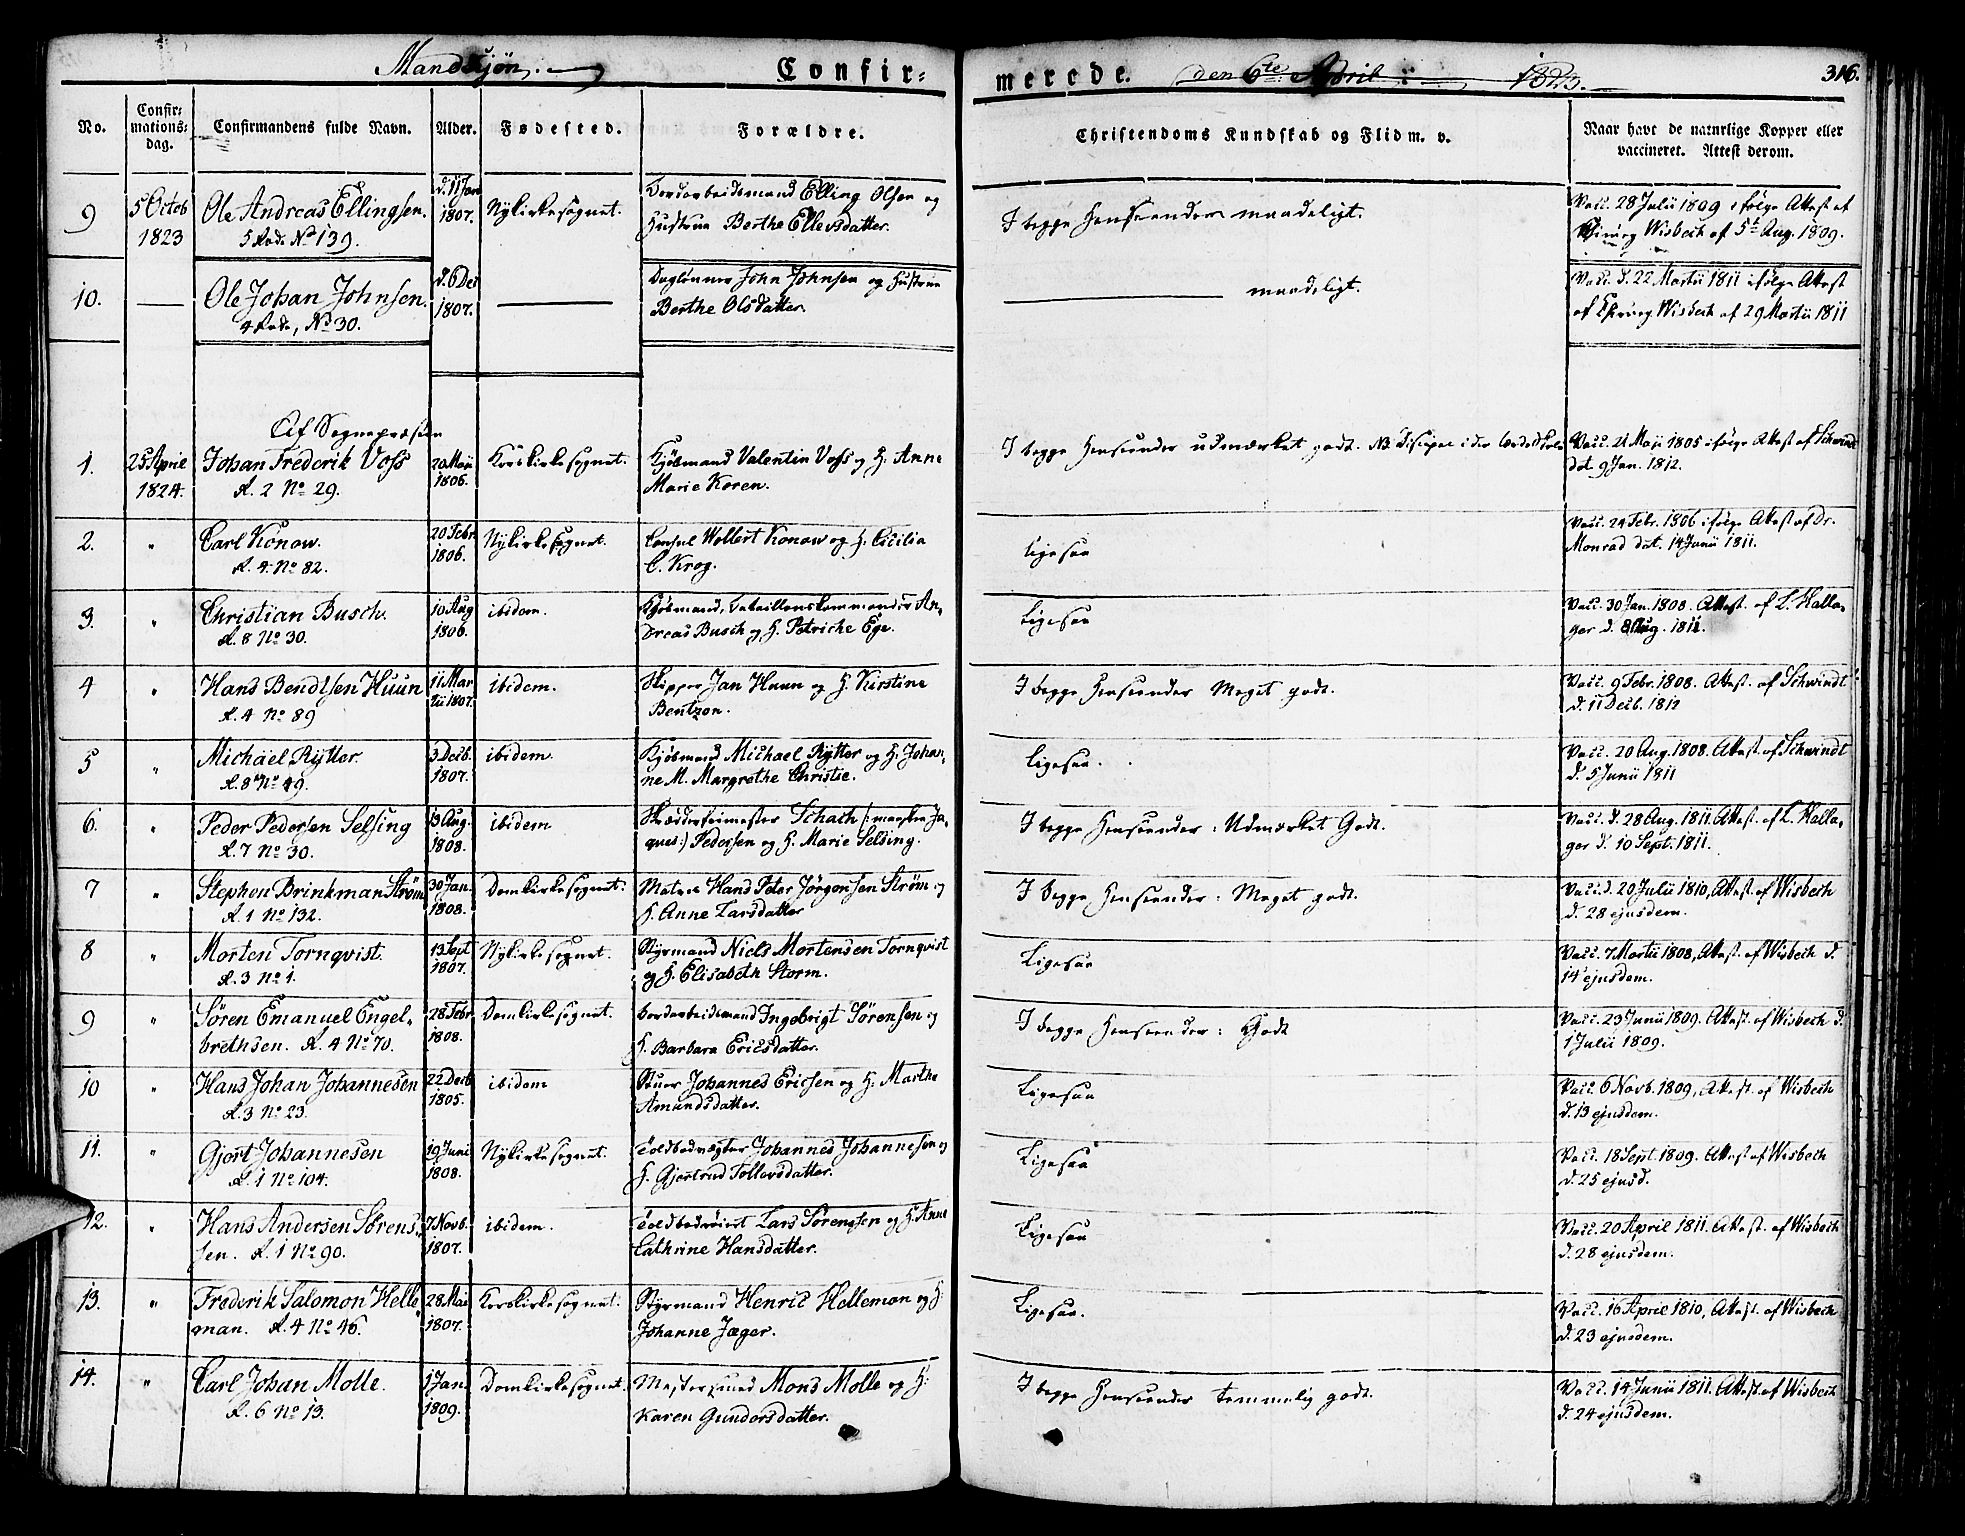 Mandkjøn. Confir=
merede. den 6te April 1823. 316.
No. Confir=mations=dag. Confirmandens fulde Navn. Alder. Fødested. Forældre. Christendoms Kundskab og Flid m. v. Naar havt de naturlige Kopper eller vaccineret. Attest derom.
9 5 Octob 1823 Ole Andreas Ellingsen. 5 Rode No 139. d. 11 Jan 1807. Nykirkesognet. Bordarbeidsmand Elling Olsen og Hustrue Berthe Ellevsdatter. I begge Henseender maadeligt. Vacc. 28 Julii 1809 ifølge Attest af Chirurg Wisbech af 5te Aug. 1809.
10. Ole Johan Johnsen. 4 Rode, No 30. d. 6 Dec 1807. Daglønner John Johnsen og Hustrue Berthe Olsdatter. maadeligt. Vacc. d. 22 Martii 1811 ifølge Attest af Chirurg Wisbech af 29 Martii 1811
Af Sognepræsten
1. 25 April 1824. Johan Frederik Voss R. 2 No 29. 20 Maji 1806. Korskirkesognet. Kjøbmand Valentin Voss og H. Anne Marie Koren. I begge Henseender udmærket godt. NB Discipel i den lærde Skole Vacc. 21 Maji 1805 ifølge Attest af Schwindt dat. 9 Jan. 1812.
2. " Carl Konow. R. 4 No 82. 20 Febr. 1806. Nykirkesognet. Consul Wollert Konow og H. Cicilia C. Krog. Ligesaa Vacc. 24 Febr. 1806 ifølge Attest af Dr. Monrad dat. 14 Junii 1811.
3. " Christian Busch. R. 8 No 30. 10 Aug 1806. ibidem. Kjøbmand, Bataillonskommandør Andreas Busch og H. Petriche Ege. Ligesaa Vacc. 30 Jan. 1808. Attest. af L. Hallager d. 8 Aug. 1811.
4 " Hans Bendtsen Huun R. 4 No 89 11 Martii 1807. ibidem. Skipper Jan Huun og H. Kirstine Bentzon. I begge Henseender Meget godt. Vacc. 9 Febr. 1808. Attest. af Schwindt d. 11 Decb. 1812
5 " Michael Rytter. R. 8 No 49. 3 Decb. 1807. ibidem. Kjøbmand Michael Rytter og H. Johanne M. Margrethe Christie. Ligesaa. Vacc. 20 Aug. 1808. Attest. af Schwindt d. 5 Junii 1811
6. " Peder Pedersen Selsing R. 7 No 30. 13 Aug. 1808. ibidem Skrædderfrimester Schach (: maaskee Jaques:) Pedersen og H. Marie Selsing. I begge Henseender: Udmærket Godt. Vacc. d. 28 Aug. 1811. Attest. af L. Hallager d. 10 Sept. 1811.
7 " Stephen Brinkman Strøm R. 1 No 132. 30 Jan. 1808. Domkirkesognet. Matros Hans Peter Jørgensen Strøm og H. Anne Larsdatter I begge Henseender: Meget godt. Vacc. d. 20 Julii 1810, Attest. af Wisbech d. 28 ejusdem.
8 " Morten Tornqvist. R. 3 No 1. 13 Sept 1807. Nykirkesognet. Styrmand Niels Mortensen Tornqvist og H. Elisabeth Storm. Ligesaa Vacc. 7 Martii 1808, Attest. af Wisbech d. 14 ejusdem.
9 " Søren Emanuel Engelbrethsen. R. 4 No 70. 28 Febr 1808. Domkirkesognet. Bordarbeidsmand Ingebrigt Sørensen og H. Barbara Ericsdatter. I begge Henseender: Godt Vacc. 23 Junii 1809. Attest. af Wisbech d. 1 Julii 1809.
10 " Hans Johan Johannesen R. 3 No 23. 22 Decb 1805. ibidem Stuer Johannes Ericsen og H. Marthe Amundsdatter. Ligesaa Vacc. 6 Novb. 1809, Attest. af Wisbech d. 13 ejusdem.
11. " Gjert Johannesen R. 1 No 104. 19 Juni 1808. Nykirkesognet. Toldbodvægter Johannes Johannesen og H. Gjertrud Tollevsdatter. Ligesaa Vacc. 18 Sept. 1809. Attest. af Wisbech d. 25 ejusd.
12. " Hans Andersen Sørenssen. R. 1 No 90. 7 Novb. 1807. ibidem. Lars Sørenssen og H. Anne Cathrine Hansdatter. Ligesaa Vacc. 20 April 1811. Attest. af Wisbech d. 28 ejusdem.
13. " Frederik Salomon Helleman. R. 4 No 46. 28 Mai 1807. Korskirkesognet. Styrmand Henric Helleman og H: Johanne Jæger. Ligesaa. Vacc. 16 April 1810, Attest. af Wisbech d. 23 ejusdem.
14. " Carl Johan Molle. R. 6 No 13. 1 Jan. 1809. Domkirkesognet. Mestersmed Mons Molle og H: Karen Gundersdatter. I begge Henseender temmelig godt. Vacc. 14 Junii 1811. Attest. af Wisbech d. 24 ejusdem.